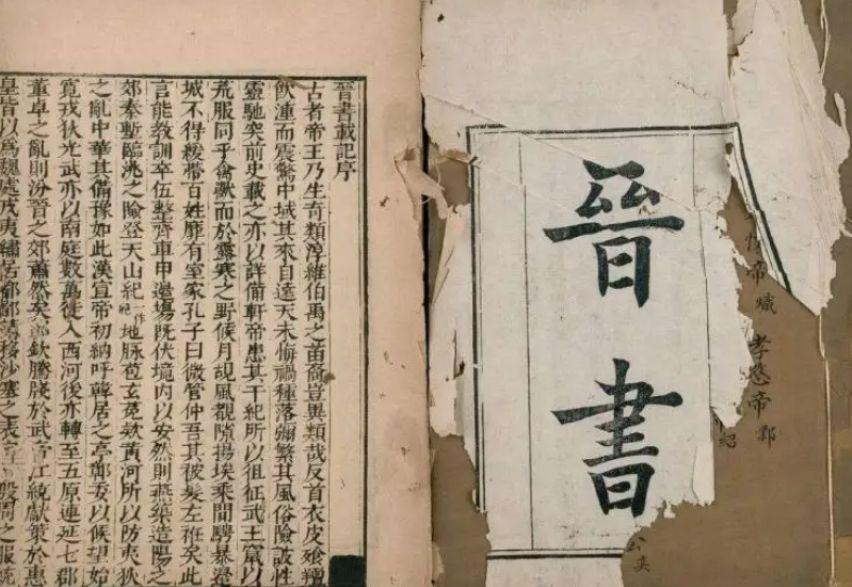 帝熾
孝愍帝鄴
晉書
晉書載記序
古者帝王乃生奇類淳維伯禹之苗裔豈異類哉反首衣皮飱羶
飲湩而震驚中域其來自遠天未悔禍種落彌繁其風俗險詖性
靈馳突前史載之亦以詳備軒帝患其干紀所以徂征武王竄以
荒服同乎禽獸而於露寒之野候月覘風覩隙揚埃乘間騁暴邊
城不得緩帶百姓靡有室家孔子曰微管仲吾其被髮左袵矣此
言能教訓卒伍整齊車甲邊場既伏境内以安然則燕築造陽之
郊秦塹臨洮之險登天山紀一作絕地脉苞玄菟款黃河所以防夷狄
之亂中華其備豫如此漢宣帝初納呼韓居之亭鄣委以候望始
寬戎狄光武亦以南庭數萬徒入西河後亦轉至五原連延七郡
董卓之亂則汾晉之郊蕭然矣郭欽騰牋於武帝江統獻策於惠
皇皆以爲魏處戎夷繡居都鄙請移沙塞之表定一殷周之服統